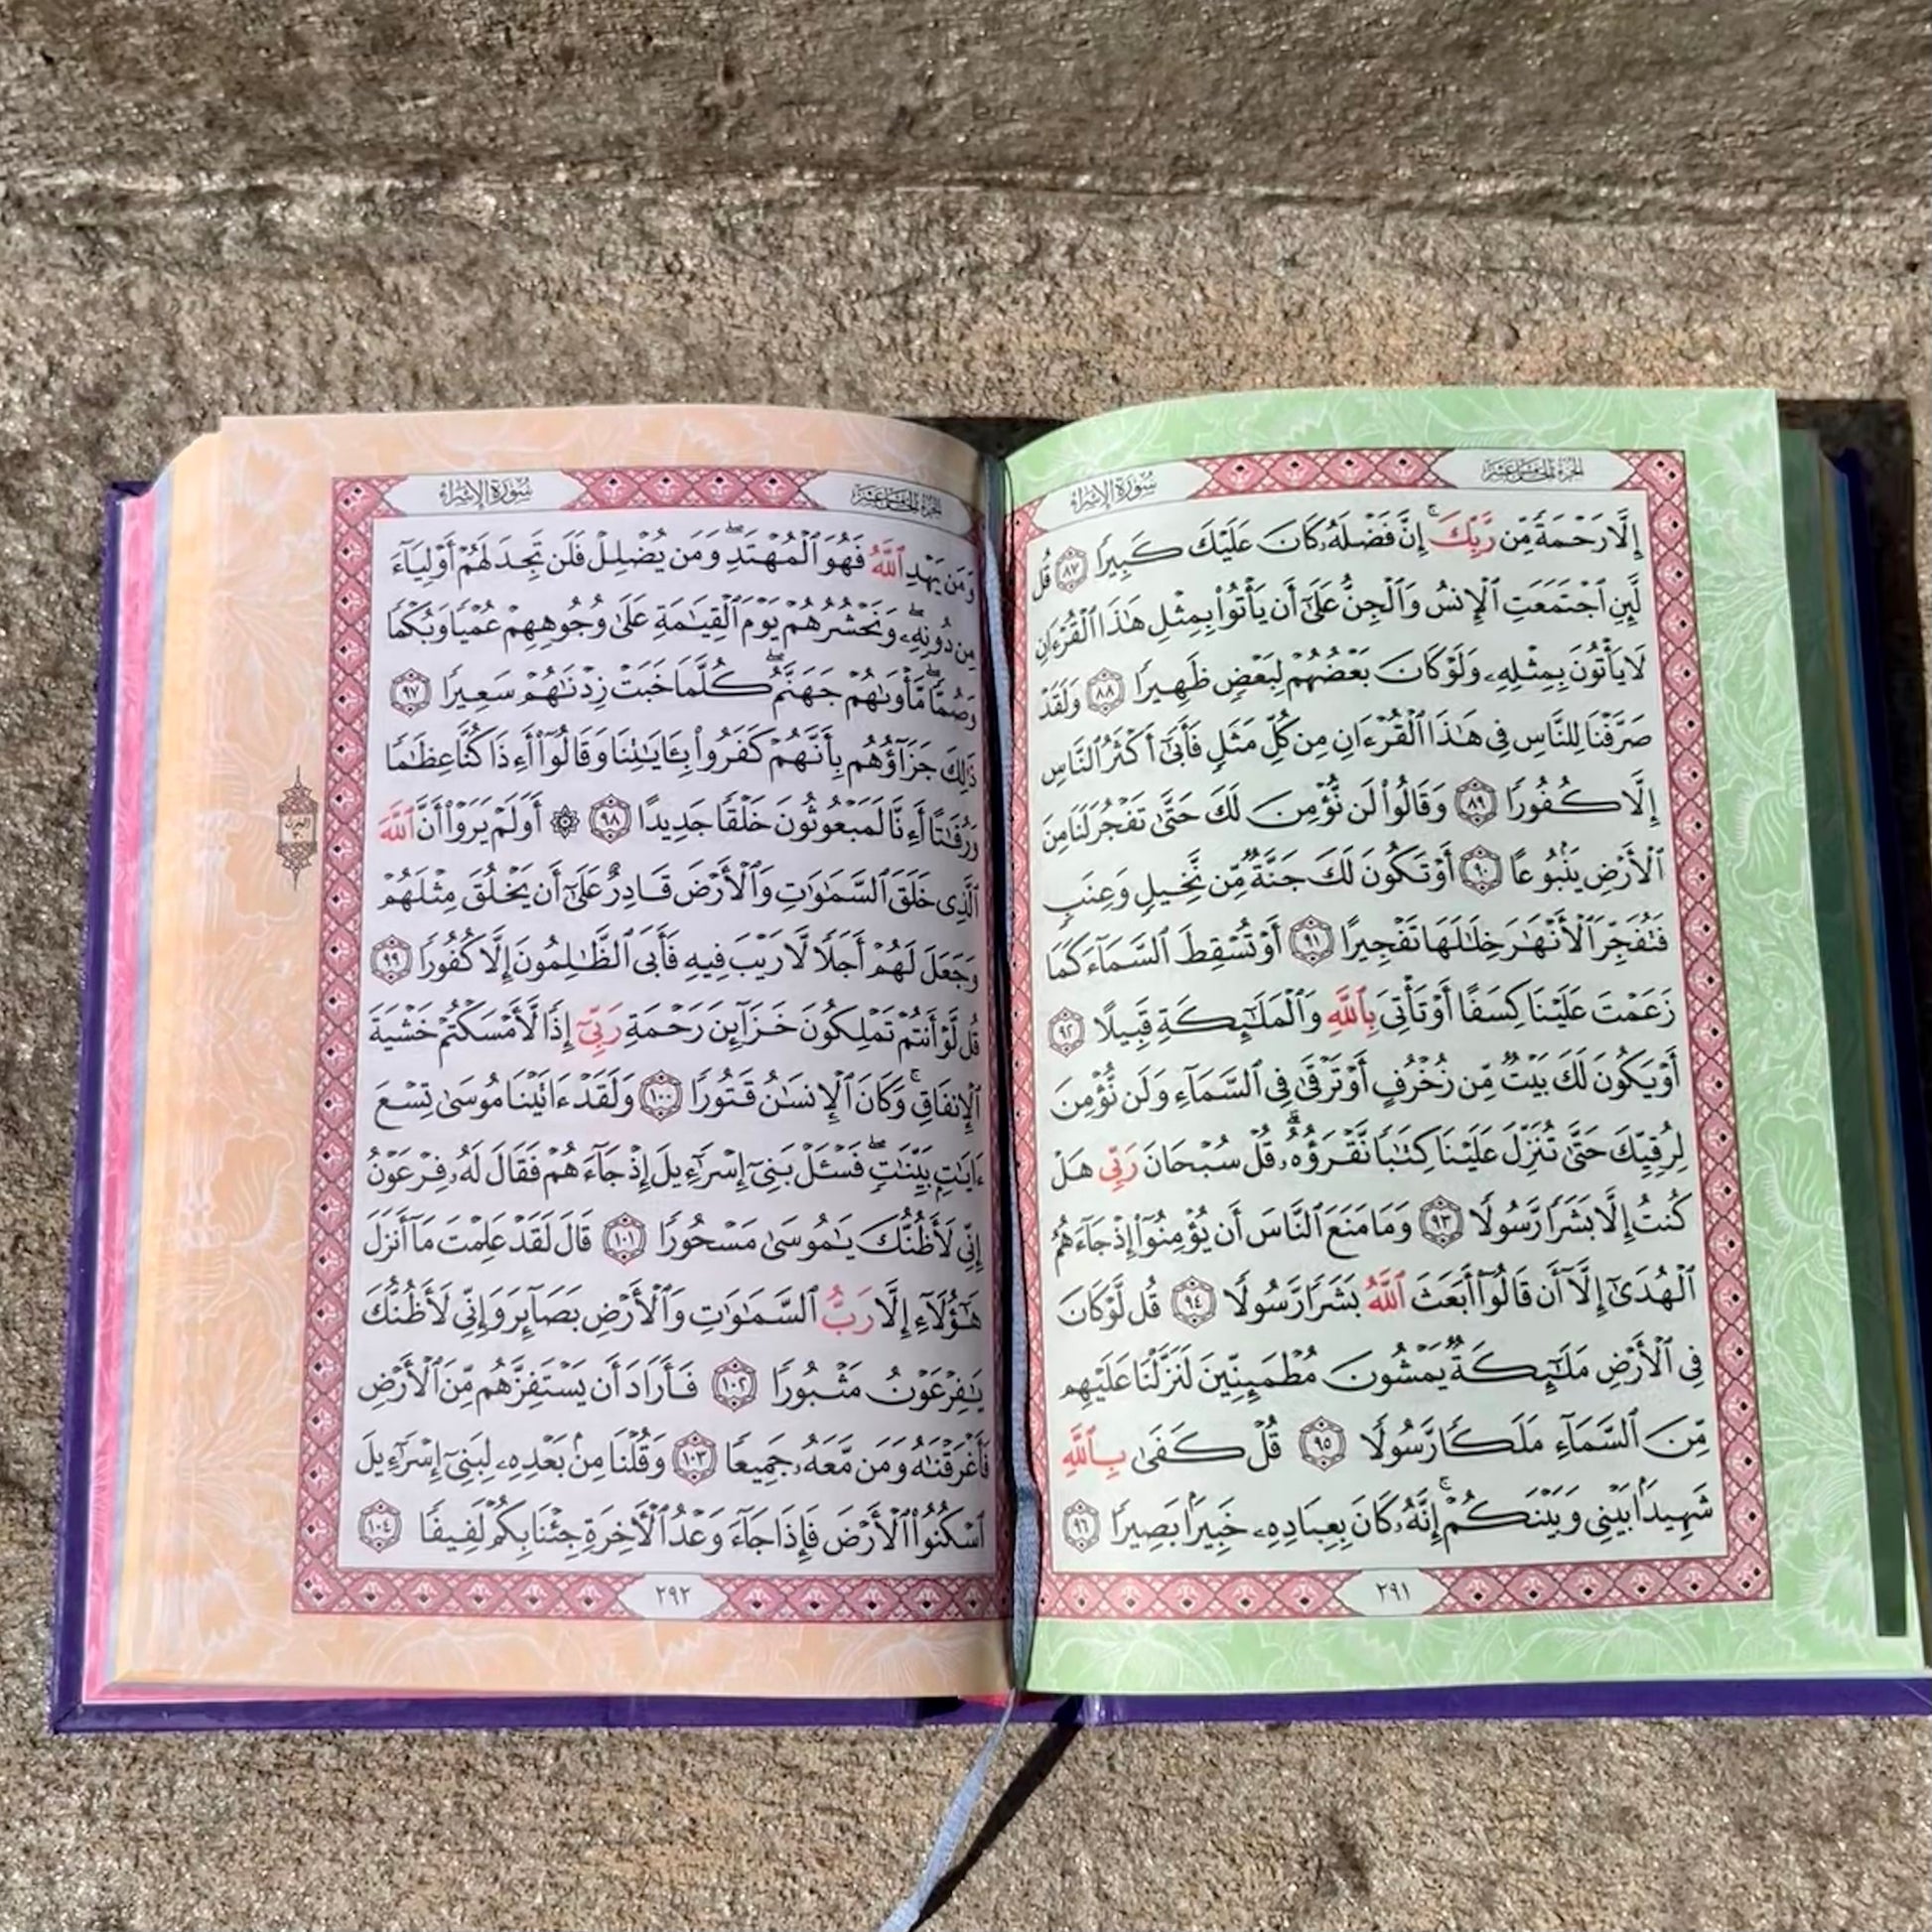 سُورَةُ الإِسْرَاءِ
الجُزْءُ الخَامِسَ عَشَرَ
إِلَّا رَحْمَةً مِّن رَّبِّكَ ۚ إِنَّ فَضْلَهُۥ كَانَ عَلَيْكَ كَبِيرًا ٨٧ قُل
لَّئِنِ ٱجْتَمَعَتِ ٱلْإِنسُ وَٱلْجِنُّ عَلَىٰٓ أَن يَأْتُوا۟ بِمِثْلِ هَـٰذَا ٱلْقُرْءَانِ
لَا يَأْتُونَ بِمِثْلِهِۦ وَلَوْ كَانَ بَعْضُهُمْ لِبَعْضٍ ظَهِيرًا ٨٨ وَلَقَدْ
صَرَّفْنَا لِلنَّاسِ فِى هَـٰذَا ٱلْقُرْءَانِ مِن كُلِّ مَثَلٍ فَأَبَىٰٓ أَكْثَرُ ٱلنَّاسِ
إِلَّا كُفُورًا ٨٩ وَقَالُوا۟ لَن نُّؤْمِنَ لَكَ حَتَّىٰ تَفْجُرَ لَنَا مِنَ
ٱلْأَرْضِ يَنۢبُوعًا ٩٠ أَوْ تَكُونَ لَكَ جَنَّةٌ مِّن نَّخِيلٍ وَعِنَبٍ
فَتُفَجِّرَ ٱلْأَنْهَـٰرَ خِلَـٰلَهَا تَفْجِيرًا ٩١ أَوْ تُسْقِطَ ٱلسَّمَآءَ كَمَا
زَعَمْتَ عَلَيْنَا كِسَفًا أَوْ تَأْتِىَ بِٱللَّهِ وَٱلْمَلَـٰٓئِكَةِ قَبِيلًا ٩٢
أَوْ يَكُونَ لَكَ بَيْتٌ مِّن زُخْرُفٍ أَوْ تَرْقَىٰ فِى ٱلسَّمَآءِ وَلَن نُّؤْمِنَ
لِرُقِيِّكَ حَتَّىٰ تُنَزِّلَ عَلَيْنَا كِتَـٰبًا نَّقْرَؤُهُۥ ۗ قُلْ سُبْحَانَ رَبِّى هَلْ
كُنتُ إِلَّا بَشَرًا رَّسُولًا ٩٣ وَمَا مَنَعَ ٱلنَّاسَ أَن يُؤْمِنُوٓا۟ إِذْ جَآءَهُمُ
ٱلْهُدَىٰٓ إِلَّآ أَن قَالُوٓا۟ أَبَعَثَ ٱللَّهُ بَشَرًا رَّسُولًا ٩٤ قُل لَّوْ كَانَ
فِى ٱلْأَرْضِ مَلَـٰٓئِكَةٌ يَمْشُونَ مُطْمَئِنِّينَ لَنَزَّلْنَا عَلَيْهِم
مِّنَ ٱلسَّمَآءِ مَلَكًا رَّسُولًا ٩٥ قُلْ كَفَىٰ بِٱللَّهِ
شَهِيدًۢا بَيْنِى وَبَيْنَكُمْ ۚ إِنَّهُۥ كَانَ بِعِبَادِهِۦ خَبِيرًۢا بَصِيرًا ٩٦
٢٩١
سُورَةُ الإِسْرَاءِ
الجُزْءُ الخَامِسَ عَشَرَ
وَمَن يَهْدِ ٱللَّهُ فَهُوَ ٱلْمُهْتَدِ ۖ وَمَن يُضْلِلْ فَلَن تَجِدَ لَهُمْ أَوْلِيَآءَ
مِن دُونِهِۦ ۖ وَنَحْشُرُهُمْ يَوْمَ ٱلْقِيَـٰمَةِ عَلَىٰ وُجُوهِهِمْ عُمْيًا وَبُكْمًا
وَصُمًّا ۖ مَّأْوَىٰهُمْ جَهَنَّمُ ۖ كُلَّمَا خَبَتْ زِدْنَـٰهُمْ سَعِيرًا ٩٧
ذَٰلِكَ جَزَآؤُهُم بِأَنَّهُمْ كَفَرُوا۟ بِـَٔايَـٰتِنَا وَقَالُوٓا۟ أَءِذَا كُنَّا عِظَـٰمًا
وَرُفَـٰتًا أَءِنَّا لَمَبْعُوثُونَ خَلْقًا جَدِيدًا ٩٨ ۞ أَوَلَمْ يَرَوْا۟ أَنَّ ٱللَّهَ
ٱلَّذِى خَلَقَ ٱلسَّمَـٰوَٰتِ وَٱلْأَرْضَ قَادِرٌ عَلَىٰٓ أَن يَخْلُقَ مِثْلَهُمْ
وَجَعَلَ لَهُمْ أَجَلًا لَّا رَيْبَ فِيهِ فَأَبَى ٱلظَّـٰلِمُونَ إِلَّا كُفُورًا ٩٩
قُل لَّوْ أَنتُمْ تَمْلِكُونَ خَزَآئِنَ رَحْمَةِ رَبِّىٓ إِذًا لَّأَمْسَكْتُمْ خَشْيَةَ
ٱلْإِنفَاقِ ۚ وَكَانَ ٱلْإِنسَـٰنُ قَتُورًا ١٠٠ وَلَقَدْ ءَاتَيْنَا مُوسَىٰ تِسْعَ
ءَايَـٰتٍۭ بَيِّنَـٰتٍ ۖ فَسْـَٔلْ بَنِىٓ إِسْرَٰٓءِيلَ إِذْ جَآءَهُمْ فَقَالَ لَهُۥ فِرْعَوْنُ
إِنِّى لَأَظُنُّكَ يَـٰمُوسَىٰ مَسْحُورًا ١٠١ قَالَ لَقَدْ عَلِمْتَ مَآ أَنزَلَ
هَـٰٓؤُلَآءِ إِلَّا رَبُّ ٱلسَّمَـٰوَٰتِ وَٱلْأَرْضِ بَصَآئِرَ وَإِنِّى لَأَظُنُّكَ
يَـٰفِرْعَوْنُ مَثْبُورًا ١٠٢ فَأَرَادَ أَن يَسْتَفِزَّهُم مِّنَ ٱلْأَرْضِ
فَأَغْرَقْنَـٰهُ وَمَن مَّعَهُۥ جَمِيعًا ١٠٣ وَقُلْنَا مِنۢ بَعْدِهِۦ لِبَنِىٓ إِسْرَٰٓءِيلَ
ٱسْكُنُوا۟ ٱلْأَرْضَ فَإِذَا جَآءَ وَعْدُ ٱلْـَٔاخِرَةِ جِئْنَا بِكُمْ لَفِيفًا ١٠٤
٢٩٢
الحزب
٣٠